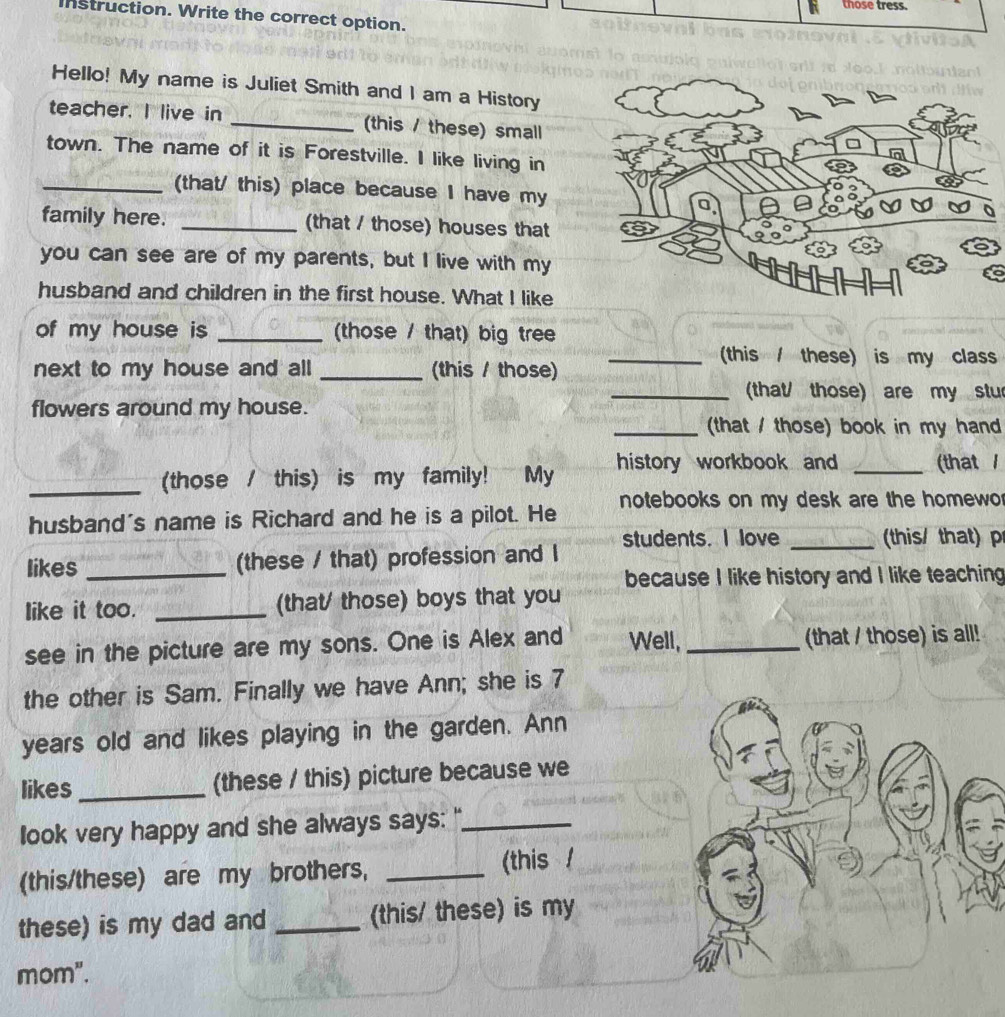 those tress.
Instruction. Write the correct option.
Hello! My name is Juliet Smith and I am a History
teacher. I live in ____________ (this / these) small
town. The name of it is Forestville. I like living in
____________ (that/ this) place because I have my
family here. ____________ (that / those) houses that
you can see are of my parents, but I live with my
husband and children in the first house. What I like
of my house is __________ (those / that) big tree
next to my house and all __________ (this / those)
flowers around my house.
___________ (those / this) is my family! My
husband´s name is Richard and he is a pilot. He
likes _____________ (these / that) profession and I
like it too. ___________ (that/ those) boys that you
see in the picture are my sons. One is Alex and
the other is Sam. Finally we have Ann; she is 7
years old and likes playing in the garden. Ann
likes ____________ (these / this) picture because we
look very happy and she always says: "___________
(this/these) are my brothers, __________ (this /
these) is my dad and ________ (this/ these) is my
mom".
_________ (this / these) is my class
___________ (that/ those) are my stu
________ (that / those) book in my hand
history workbook and _______ (that /
notebooks on my desk are the homewor
students. I love ________ (this/ that) p
because I like history and I like teaching
Well, ___________ (that / those) is all!